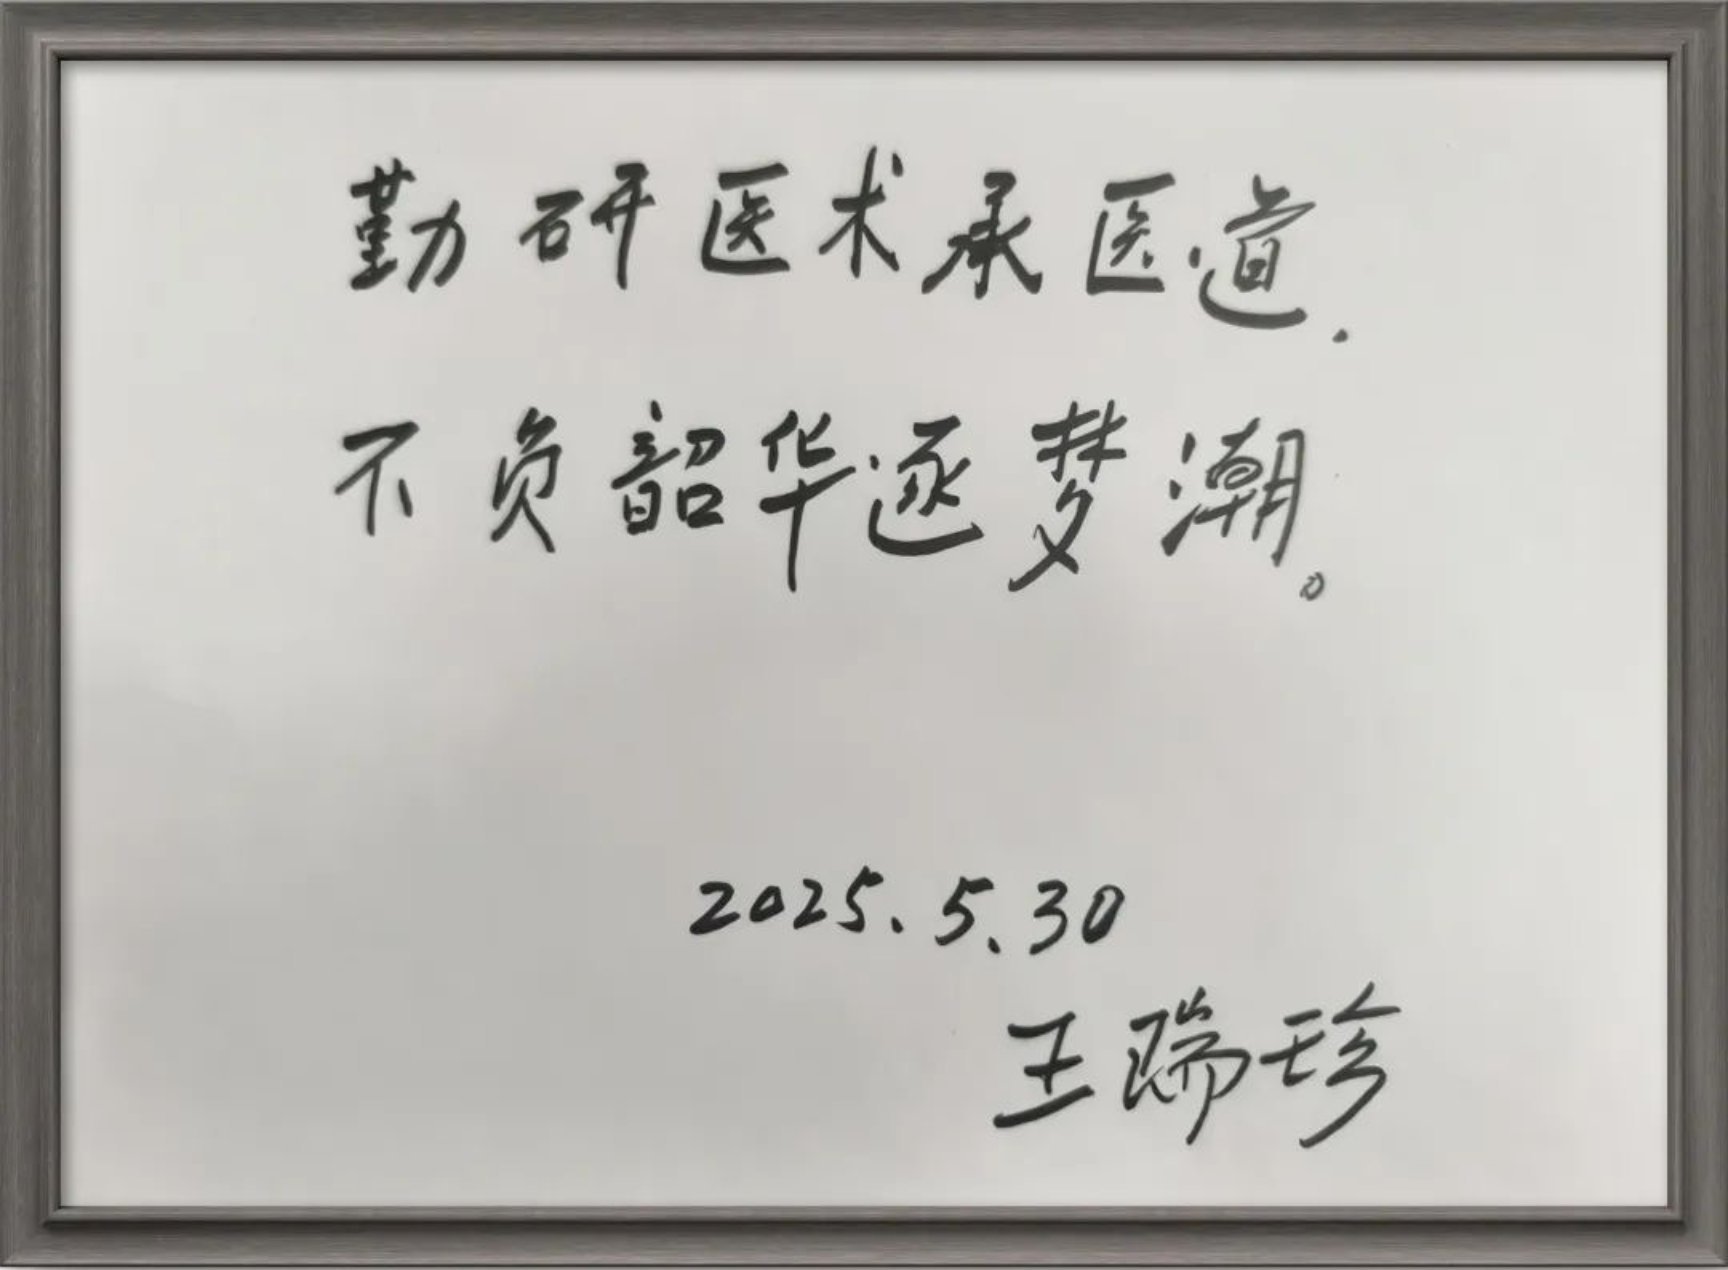 勤研医术承医道.
不负韶华逐梦潮。
2025.5.30
王瑞珍